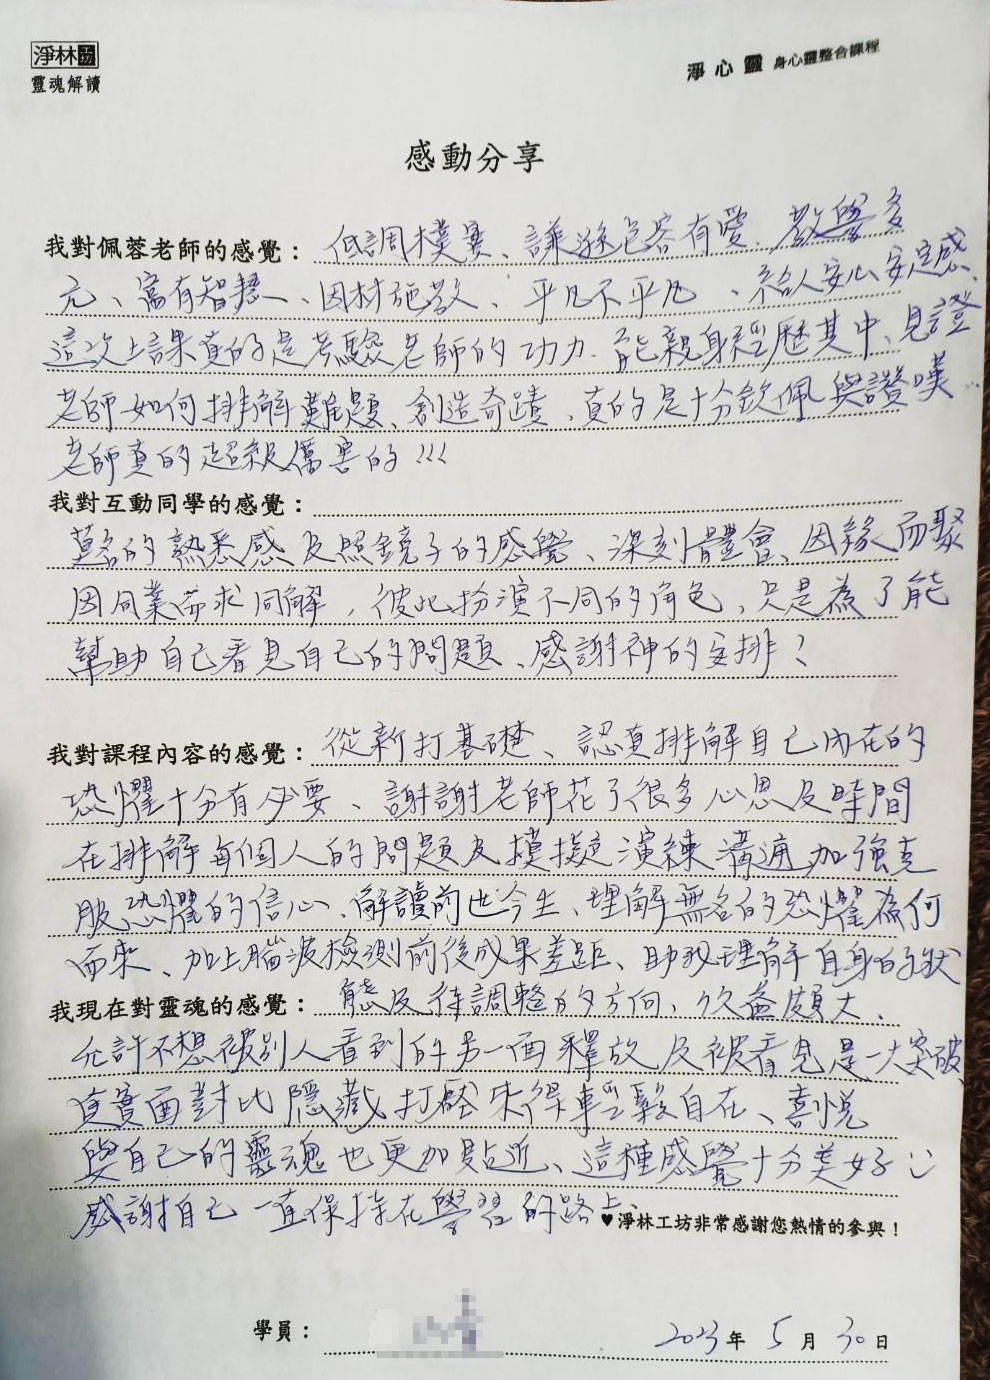 淨林工坊
靈魂解讀
淨心靈 身心靈整合課程
感動分享
我對佩蓉老師的感覺： 低調樸實、謙遜包容有愛、教學多
元、富有智慧、因材施教、平凡不平凡、給人安心安定感、
這次上課真的是考驗老師的功力、能親身經歷其中、見證
老師如何排解難題、創造奇蹟、真的是十分欽佩與讚嘆
老師真的超級厲害的!!!
我對互動同學的感覺：
莫名的熟悉感及照鏡子的感覺、深刻體會、因緣而聚
因同業而求同解，彼此扮演不同的角色、只是為了能
幫助自己看見自己的問題、感謝神的安排!
我對課程內容的感覺： 從新打基礎、認真排解自己內在的
恐懼十分有必要、謝謝老師花了很多心思及時間
在排解每個人的問題及模擬演練溝通加強克
服恐懼的信心、解讀前世今生、理解無名的恐懼為何
而來、加上腦波檢測前後成果差距、助我理解自身的狀
我現在對靈魂的感覺： 態及待調整的方向、收益頗大、
允許不想被別人看到的另一面釋放及被看見是一大突破
真實面對比隱藏打壓來得輕鬆自在、喜悅
與自己的靈魂也更加貼近、這種感覺十分美好
感謝自己一直保持在學習的路上、
♥淨林工坊非常感謝您熱情的參與！
學員：
2023年 5月 30日